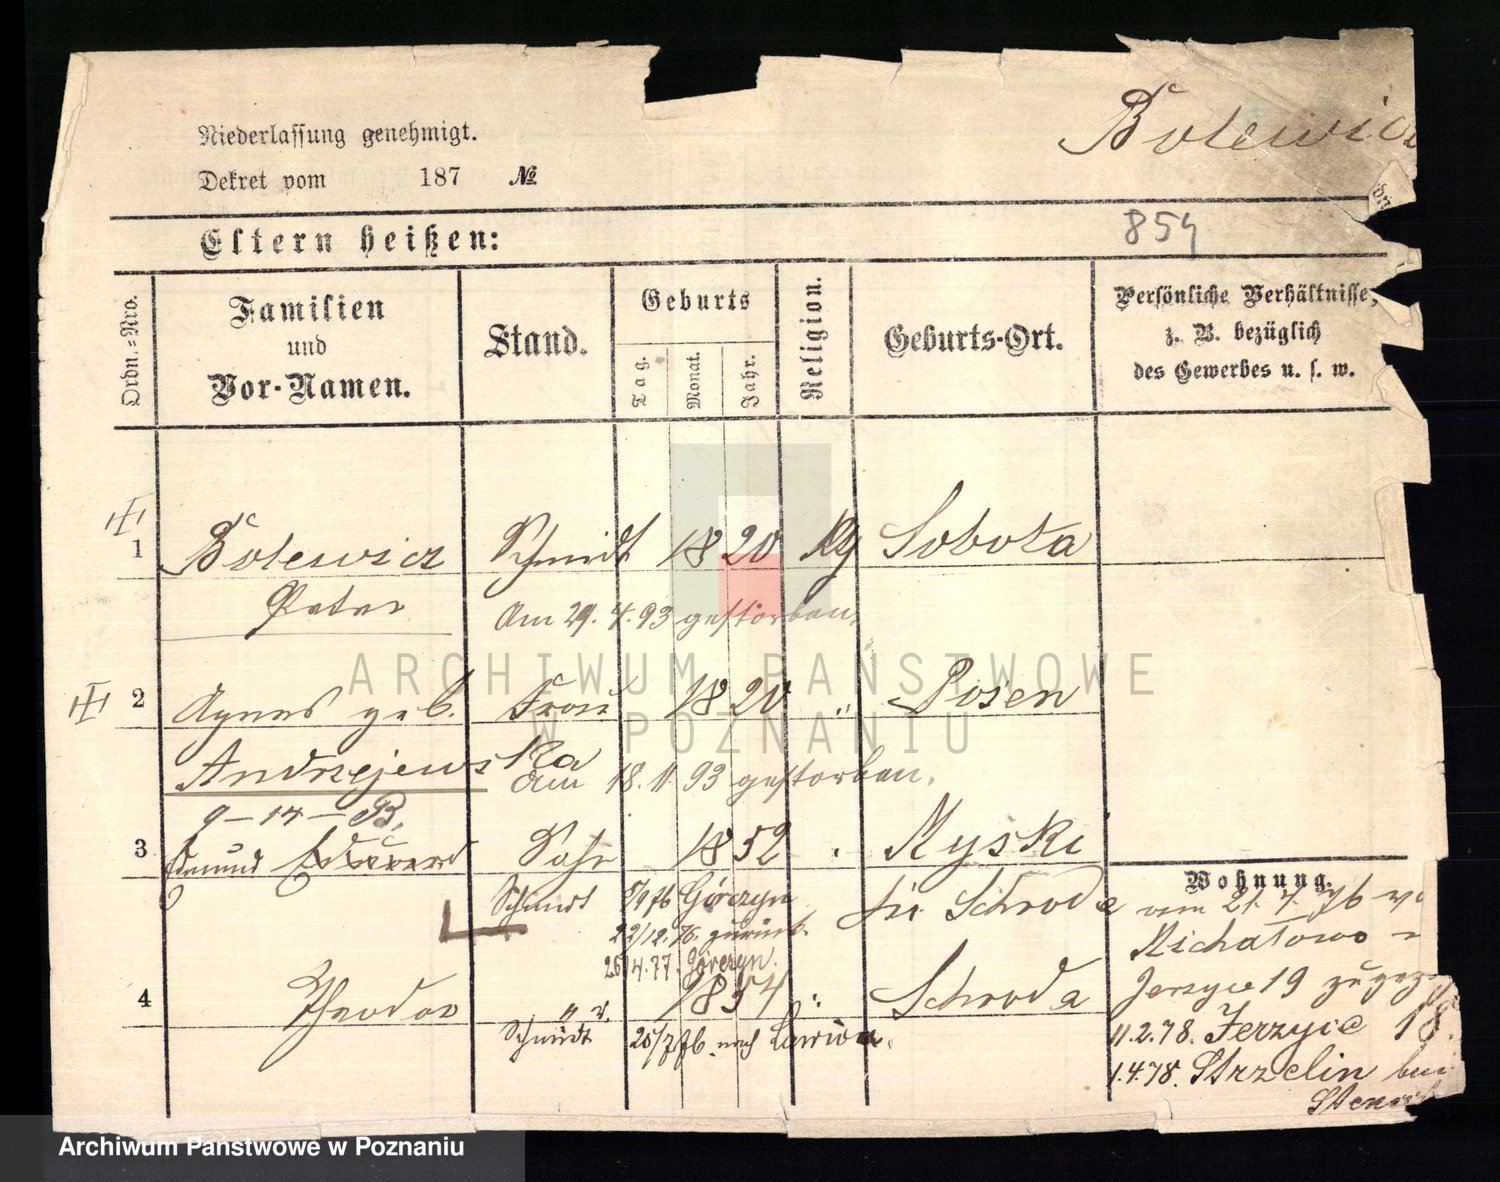 Niederlassung genehmigt.
Dekret vom 187 №
Bolewicz
854
Eltern heißen:
Ordn.-Nro.
Familien
und
Vor-Namen.
Stand.
Geburts
Tag.
Monat.
Jahr.
Religion.
Geburts-Ort.
Persönliche Verhältnisse,
z. B. bezüglich
des Gewerbes u. s. w.
1 Bolewicz Schmidt 1820 Sobota
Peter
Am 29. 4. 93 gestorben.
2 Agnes geb. Frau 1820 " Posen
Andrzejewska
Am 18. 11. 93 gestorben.
9-14-B.
3 Edmund Eduard Sohn 1852 Kyski
Schmidt 8/9 76 Górczyn
bei Schroda
22/12. 76. zurück.
26/4. 77. Górczyn.
4 Theodor 1854 " Schroda
Schmidt 25/7 76. nach Lawica.
Wohnung.
vom 21. 7. 76
Michałowo
Jerzyce 19
11.2.78. Jerzyce 18.
1.4.78. Strzelin
ARCHIWUM PAŃSTWOWE
W POZNANIU
Archiwum Państwowe w Poznaniu